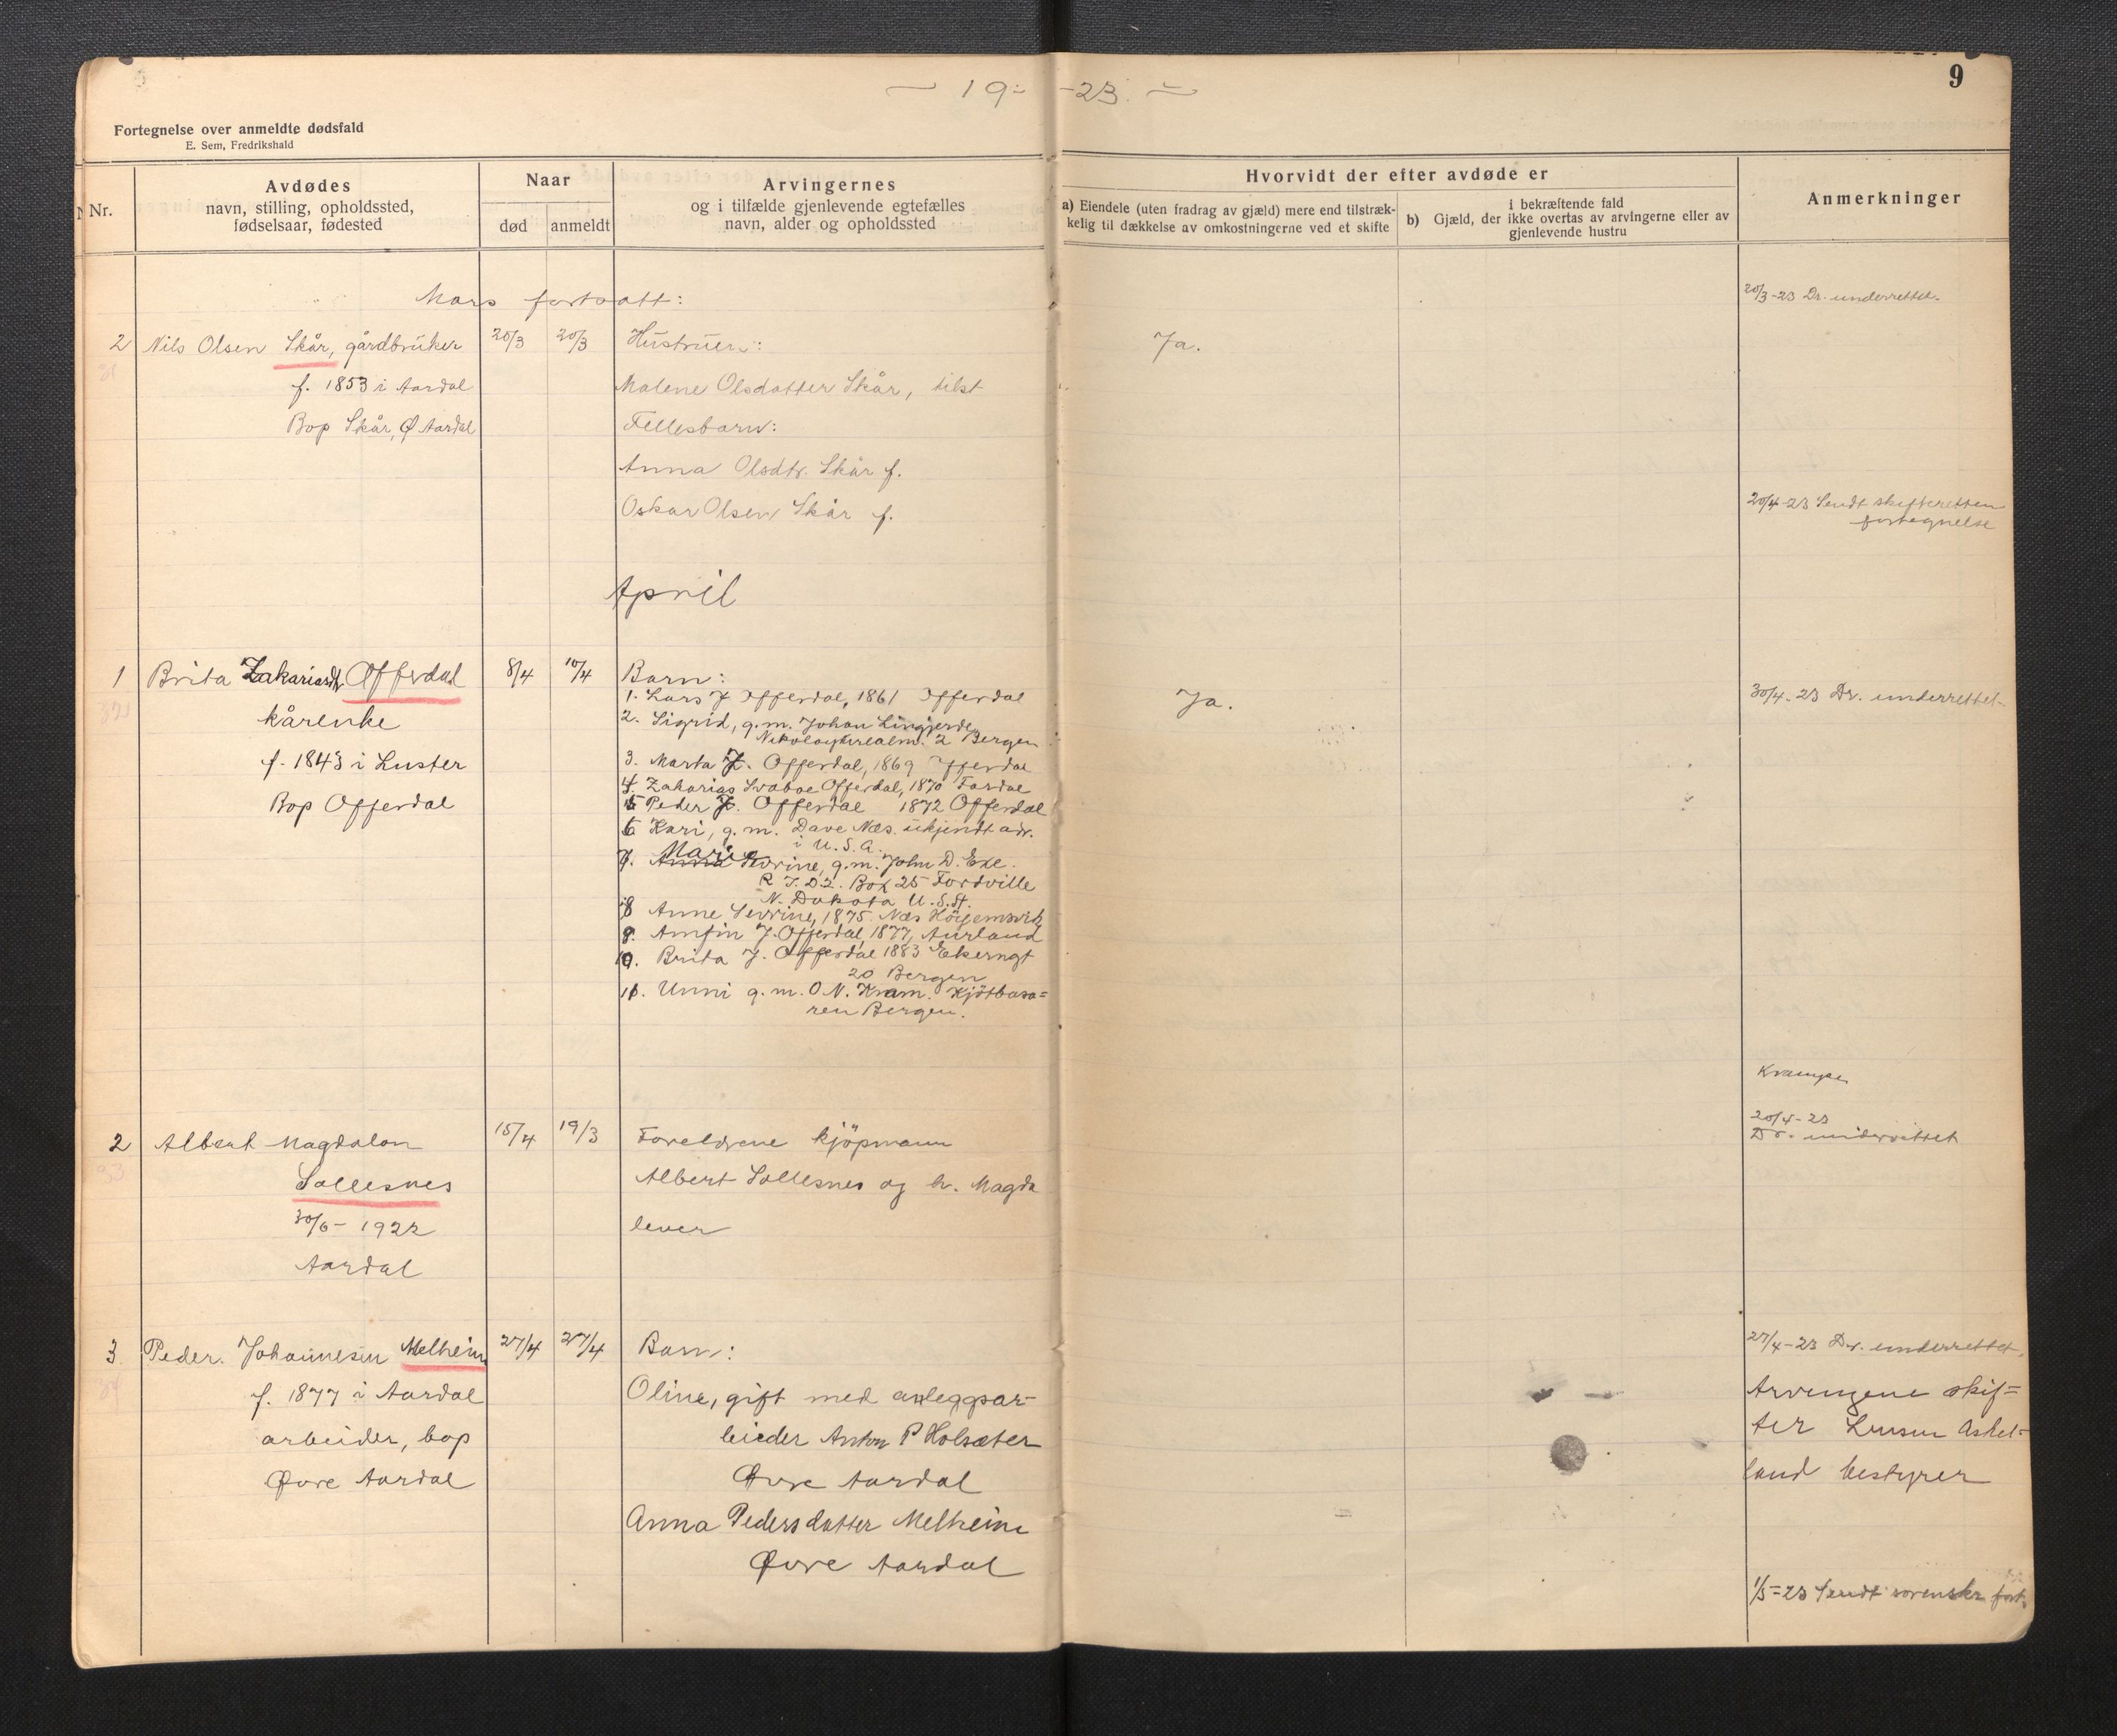 9
— 19 - - 23. —
Fortegnelse over anmeldte dødsfald
E. Sem, Fredrikshald
Nr.
Avdødes
navn, stilling, opholdssted,
fødselsaar, fødested
Naar
død
anmeldt
Arvingernes
og i tilfælde gjenlevende egtefælles
navn, alder og opholdssted
Hvorvidt der efter avdøde er
a) Eiendele (uten fradrag av gjæld) mere end tilstræk-
kelig til dækkelse av omkostningerne ved et skifte
i bekræftende fald
b) Gjæld, der ikke overtas av arvingerne eller av
gjenlevende hustru
Anmerkninger
Mars fortsatt:
20/3-23 Dr. underrettet.
2 Nils Olsen Skår, gårdbruker 20/3 20/3 Hustruen: Ja.
f. 1853 i Aardal Malene Olsdatter Skår, tilst
Bop Skår, Ø Aardal Fellesbarn:
Anna Olsdtr. Skår f.
Oskar Olsen Skår f.
20/4-23 Sendt skifteretten
fortegnelse
April
1 Brita Zakariasdtr Offerdal 8/4 10/4 Barn: Ja. 30/4-23 Dr. underrettet
kårenke
f. 1843 i Luster
Bop Offerdal
1. Lars J Offerdal, 1861 Offerdal
2. Sigrid, g.m. Johan Lingjerde
2 Bergen
3. Marta J. Offerdal, 1869 Offerdal
4. Zakarias Svaboe Offerdal, 1870 Fardal
5 Peder J. Offerdal 1872 Offerdal
6 Kari, g.m. Dave Næs. ukjendt adr.
i U.S.A.
7. Marie Sevrine, g.m. John D. Exe.
Box 25 Fordville
N. Dakota U.S.A.
8 Anne Sevrine, 1875. Næs
9. Amfin J. Offerdal, 1877, Aurland
10. Brita J. Offerdal 1883 Ekerngt
20 Bergen
11. Unni g.m. O.N. Kram. Kjötbasa=
ren Bergen.
2 Albert Magdalon 15/4 19/3 Foreldrene kjöpmann
20/4-23
Dr. underrettet
Sollesnes Albert Sollesnes og h. Magda
30/6- 1922 lever
Aardal
3. Peder. Johannesen Melheim 27/4 27/4 Barn: 27/4-23 Dr. underrettet.
f. 1877 i Aardal Oline, gift med anleggsar- Arvingene skif=
arbeider, bop beider Anton P Holsæter ter Lensm Askel-
Øvre Aardal Øvre Aardal land bestyrer
Anna Pedersdatter Melheim
Øvre Aardal
1/5-23 Sendt sorenskr fort.